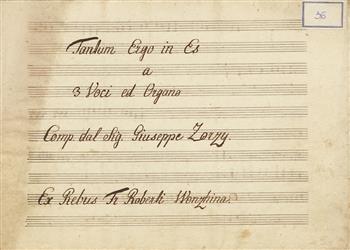 56
Tantum Ergo in Es
a
3 Voci ed Organo
Comp. dal Sig. Giuseppe Zorzy.
Ex Rebus Fr Roberti Wonzhina.